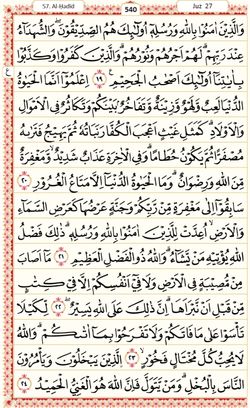 57. Al-Ḥadīd
540
Juz 27
وَالَّذِيْنَ اٰمَنُوْا بِاللّٰهِ وَرُسُلِهٖۤ اُولٰٓئِكَ هُمُ الصِّدِّيْقُوْنَ ۖ وَالشُّهَدَآءُ
عِنْدَ رَبِّهِمْ ؕ لَهُمْ اَجْرُهُمْ وَنُوْرُهُمْ ؕ وَالَّذِيْنَ كَفَرُوْا وَكَذَّبُوْا
بِاٰيٰتِنَاۤ اُولٰٓئِكَ اَصْحٰبُ الْجَحِيْمِ ١٩ اِعْلَمُوْۤا اَنَّمَا الْحَيٰوةُ
ع
الدُّنْيَا لَعِبٌ وَّلَهْوٌ وَّزِيْنَةٌ وَّتَفَاخُرٌۢ بَيْنَكُمْ وَتَكَاثُرٌ فِى الْاَمْوَالِ
وَالْاَوْلَادِ ؕ كَمَثَلِ غَيْثٍ اَعْجَبَ الْكُفَّارَ نَبَاتُهٗ ثُمَّ يَهِيْجُ فَتَرٰىهُ
مُصْفَرًّا ثُمَّ يَكُوْنُ حُطَامًا ؕ وَفِى الْاٰخِرَةِ عَذَابٌ شَدِيْدٌ ۙ وَّمَغْفِرَةٌ
مِّنَ اللّٰهِ وَرِضْوَانٌ ؕ وَمَا الْحَيٰوةُ الدُّنْيَاۤ اِلَّا مَتَاعُ الْغُرُوْرِ ٢٠
سَابِقُوْۤا اِلٰى مَغْفِرَةٍ مِّنْ رَّبِّكُمْ وَجَنَّةٍ عَرْضُهَا كَعَرْضِ السَّمَآءِ
وَالْاَرْضِ ۙ اُعِدَّتْ لِلَّذِيْنَ اٰمَنُوْا بِاللّٰهِ وَرُسُلِهٖ ؕ ذٰلِكَ فَضْلُ
اللّٰهِ يُؤْتِيْهِ مَنْ يَّشَآءُ ؕ وَاللّٰهُ ذُو الْفَضْلِ الْعَظِيْمِ ٢١ مَاۤ اَصَابَ
مِنْ مُّصِيْبَةٍ فِى الْاَرْضِ وَلَا فِىْۤ اَنْفُسِكُمْ اِلَّا فِىْ كِتٰبٍ
مِّنْ قَبْلِ اَنْ نَّبْرَاَهَا ؕ اِنَّ ذٰلِكَ عَلَى اللّٰهِ يَسِيْرٌ ٢٢ لِّكَيْلَا
تَاْسَوْا عَلٰى مَا فَاتَكُمْ وَلَا تَفْرَحُوْا بِمَاۤ اٰتٰىكُمْ ؕ وَاللّٰهُ
لَا يُحِبُّ كُلَّ مُخْتَالٍ فَخُوْرِ ٢٣ الَّذِيْنَ يَبْخَلُوْنَ وَيَاْمُرُوْنَ
النَّاسَ بِالْبُخْلِ ؕ وَمَنْ يَّتَوَلَّ فَاِنَّ اللّٰهَ هُوَ الْغَنِىُّ الْحَمِيْدُ ٢٤